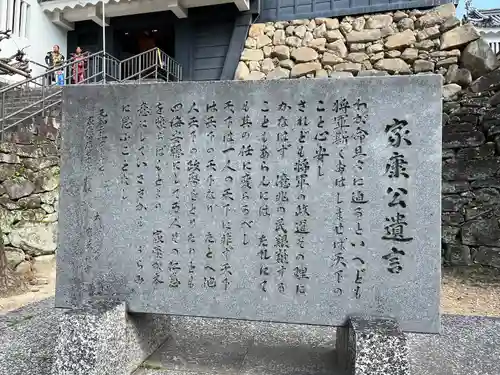 家康公遺言
わが命旦夕に迫るといへども
将軍斯くおはしませば天下の
こと心安し
されども将軍の政道その理に
かなはず億兆の民艱難する
こともあらんには たれにて
も其の任に変らるべし
天下は一人の天下に非ず天下
は天下の天下なり たとへ他
人天下の政務をとりたりとも
四海安穏にして万人その仁恩
を蒙らばもとより 家康が本
意にしていささかも うらみ
に思ふことなし